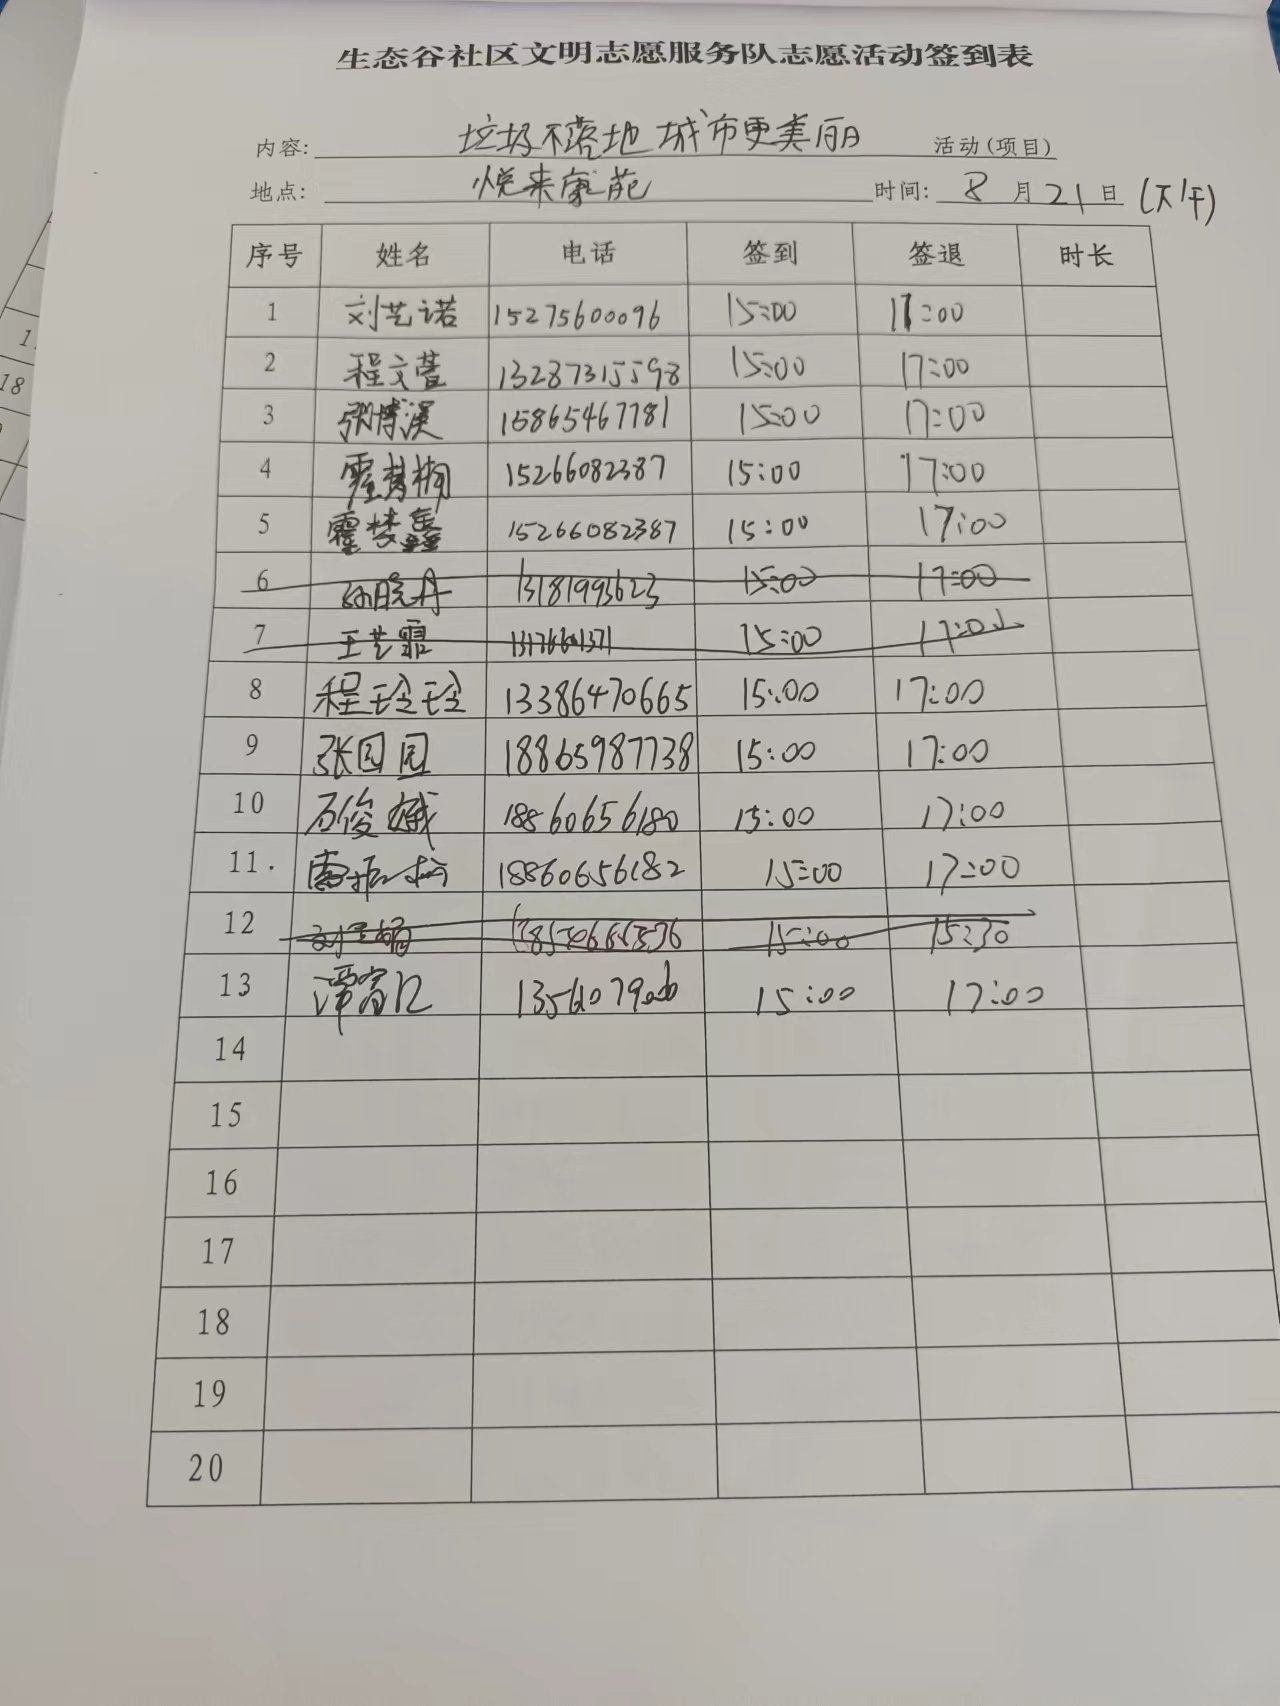 生态谷社区文明志愿服务队志愿活动签到表
内容: 垃圾不落地 城市更美丽 活动(项目)
地点: 悦来康苑 时间: 8月21日 (下午)
序号 姓名 电话 签到 签退 时长
1 刘艺诺 15275600096 15:00 17:00
2 程文萱 13287315598 15:00 17:00
3 张博溪 15865467781 15:00 17:00
4 15266082387 15:00 17:00
5 15266082387 15:00 17:00
6 孙晓丹 13181993623 15:00 17:00
7 王艺霏 15:00
8 程玲玲 13386470665 15:00 17:00
9 张园园 18865987738 15:00 17:00
10 石俊斌 18860656180 15:00 17:00
11. 18860656182 15:00 17:00
12 15:00 15:30
13 15:00 17:00
14
15
16
17
18
19
20
1
18